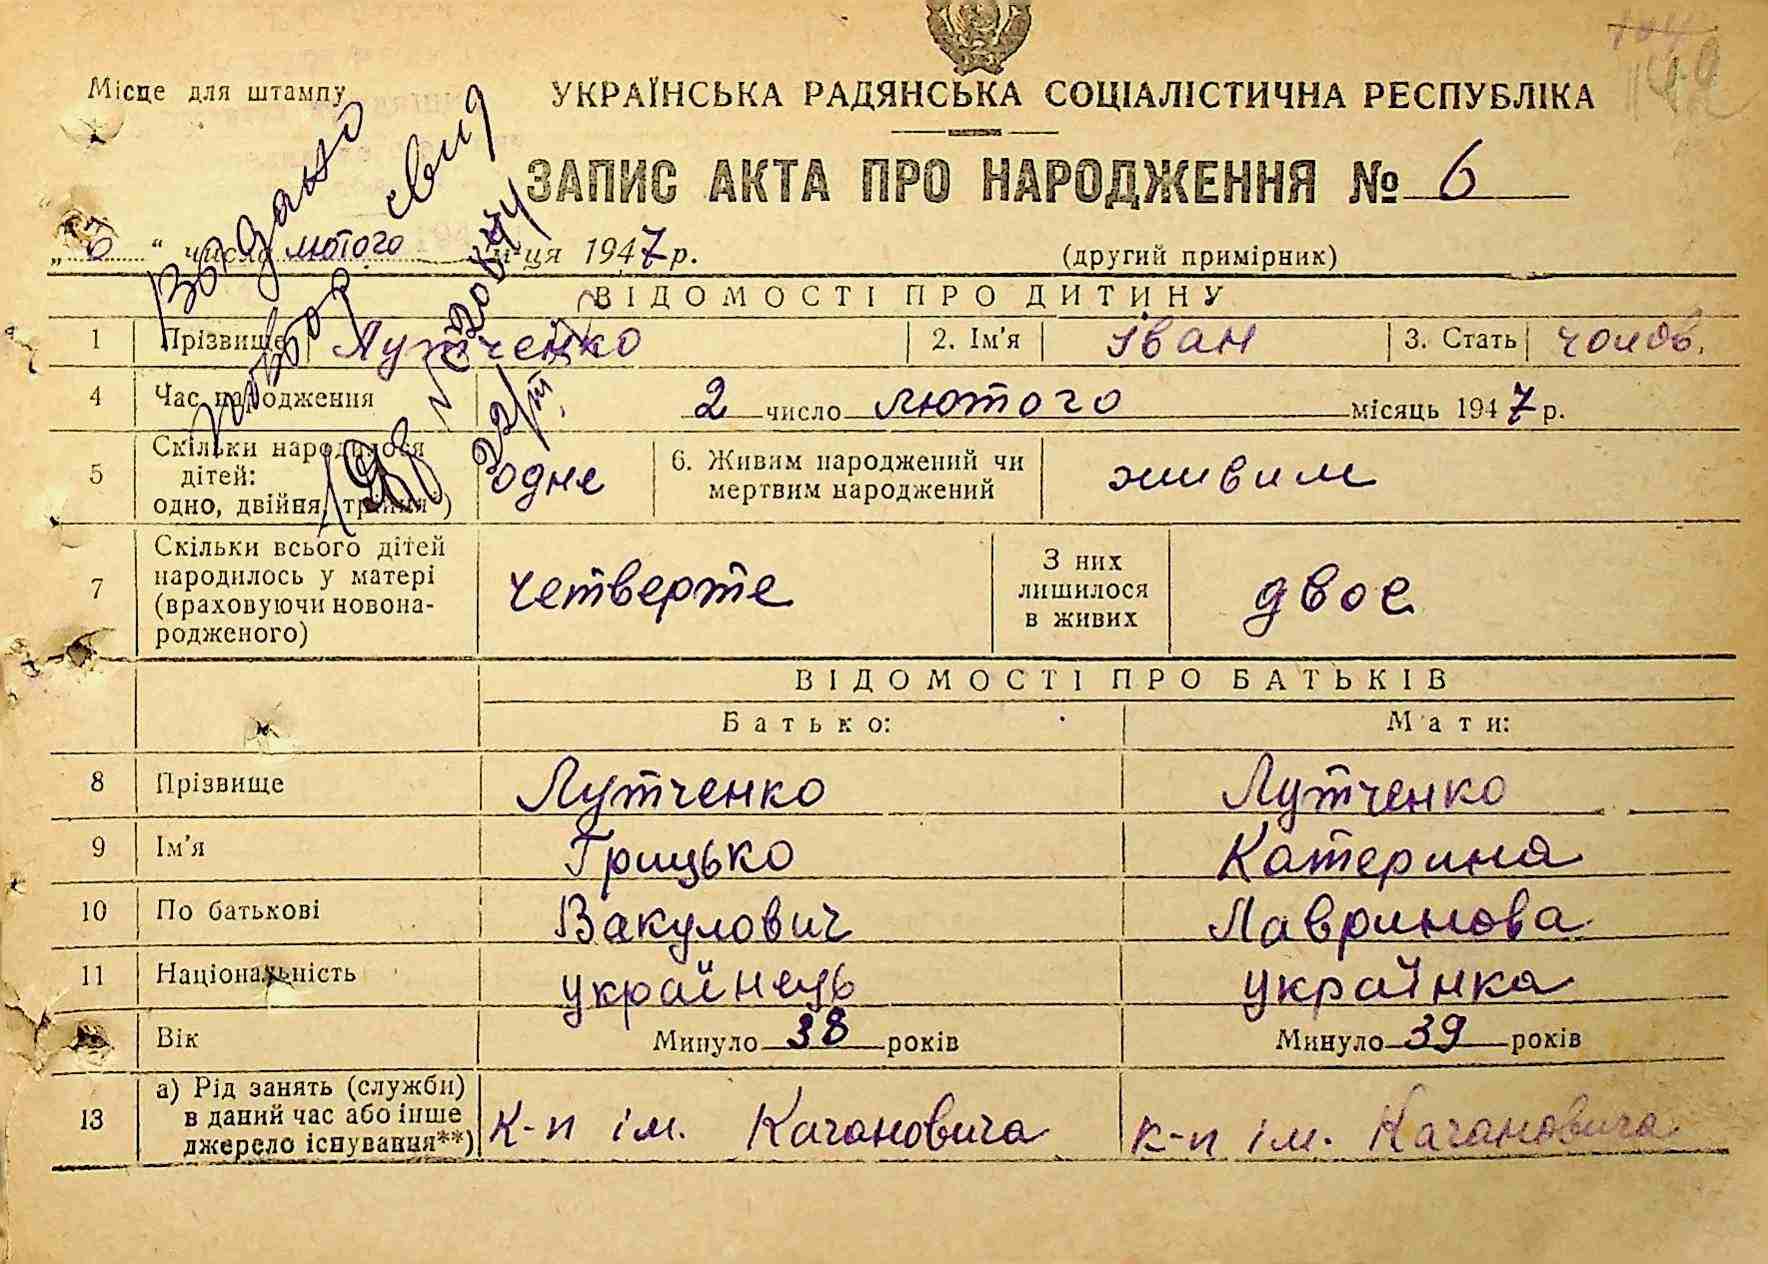 Місце для штампу
УКРАЇНСЬКА РАДЯНСЬКА СОЦІАЛІСТИЧНА РЕСПУБЛІКА
ЗАПИС АКТА ПРО НАРОДЖЕННЯ № 6
„6“ число лютого м-ця 1947 р. (другий примірник)
Видано
повтор свид
ВІДОМОСТІ ПРО ДИТИНУ
1 Прізвище Лутченко 2. Ім'я Іван 3. Стать чолов.
4 Час народження 2 число лютого місяць 1947 р.
5 Скільки народилося дітей: одно, двійня, трійня*) одне 6. Живим народжений чи мертвим народжений живим
7 Скільки всього дітей народилось у матері (враховуючи новонародженого) четверте З них лишилося в живих двое
ВІДОМОСТІ ПРО БАТЬКІВ
Батько: Мати:
8 Прізвище Лутченко Лутченко
9 Ім'я Грицько Катерина
10 По батькові Вакулович Лавринова
11 Національність українець українка
Вік Минуло 38 років Минуло 39 років
13 а) Рід занять (служби) в даний час або інше джерело існування**) К-п ім. Качановича К-п ім. Качановича